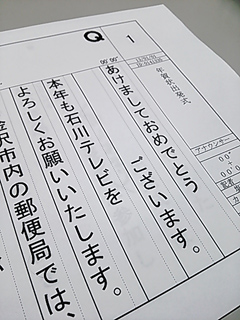 Q
1
年賀状出発式
アナウンサー
あけましておめでとう
ございます。
本年も石川テレビを
よろしくお願いいたします。
金沢市内の郵便局では、